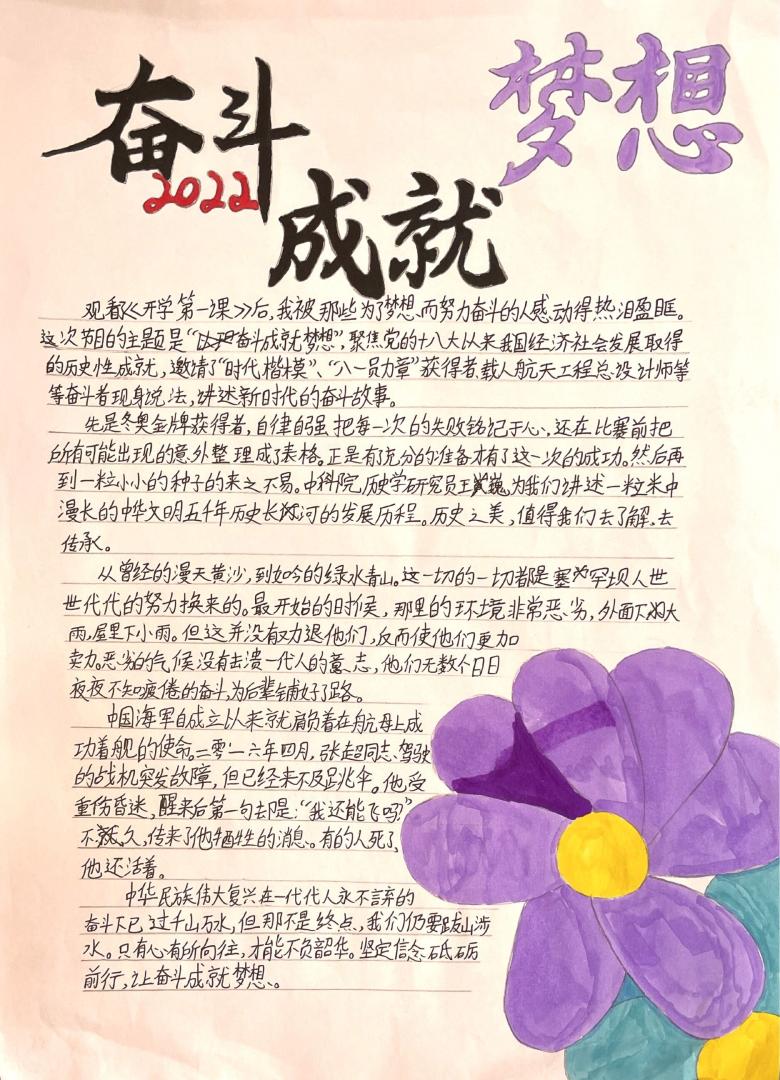 奋斗
2022
成就
梦想
观看《开学第一课》后,我被那些为了梦想而努力奋斗的人感动得热泪盈眶。
这次节目的主题是“奋斗成就梦想”,聚焦党的十八大以来我国经济社会发展取得
的历史性成就,邀请了“时代楷模”、“八一勋章”获得者、载人航天工程总设计师等
等奋斗者现身说法,讲述新时代的奋斗故事。
先是冬奥金牌获得者,自律自强把每一次的失败铭记于心,还在比赛前把
所有可能出现的意外整理成了表格。正是有充分的准备才有了这一次的成功。然后再
到一粒小小的种子的来之不易。中科院历史学研究员王巍为我们讲述一粒米中
漫长的中华文明五千年历史长河的发展历程。历史之美,值得我们去了解、去
传承。
从曾经的漫天黄沙,到如今的绿水青山。这一切的一切都是塞罕坝人世
世代代的努力换来的。最开始的时候,那里的环境非常恶劣,外面下大
雨,屋里下小雨。但这并没有劝退他们,反而使他们更加
卖力。恶劣的气候没有击溃一代人的意志,他们无数个日日
夜夜不知疲倦的奋斗,为后辈铺好了路。
中国海军自成立以来就肩负着在航母上成
功着舰的使命。二零一六年四月,张超同志驾驶
的战机突发故障,但已经来不及跳伞。他受
重伤昏迷,醒来后第一句却是:“我还能飞吗?”
不久,传来了他牺牲的消息。有的人死了,
他还活着。
中华民族伟大复兴在一代代人永不言弃的
奋斗下已过千山万水,但那不是终点,我们仍要跋山涉
水。只有心有所向往,才能不负韶华。坚定信念砥砺
前行,让奋斗成就梦想。